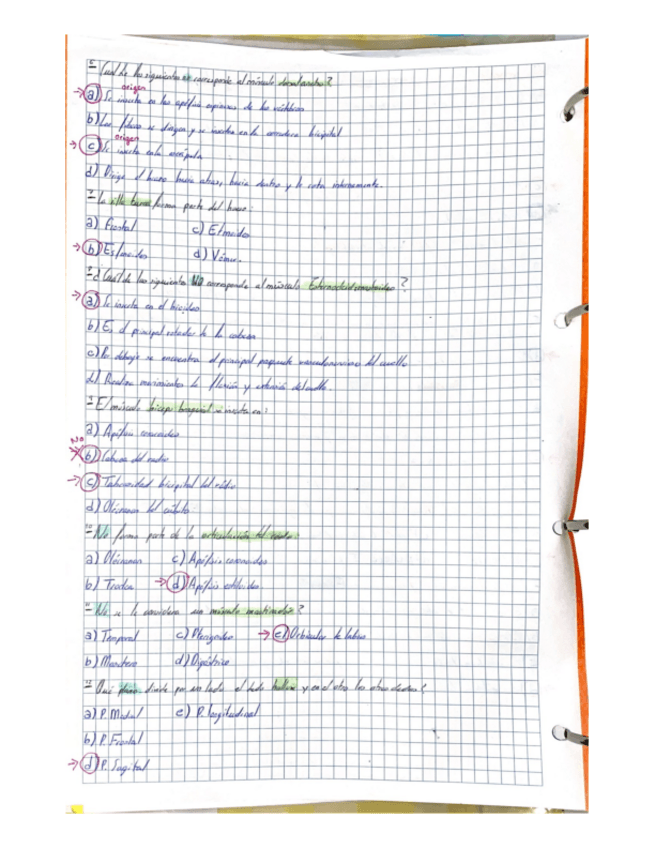 6- ¿Cuál de las siguientes no corresponde al músculo dorsal ancho?
origen
→ a) Se inserta en las apófisis espinosas de las vértebras
b) Las fibras se dirigen y se inserta en la corredera bicipital
origen
→ c) Se inserta en la escápula
d) Dirige el brazo hacia atras, hacia dentro y lo rota internamente.
7- La silla turca forma parte del hueso:
a) Frontal c) Etmoides
→ b) Esfenoides d) Vómer.
8- ¿Cuál de las siguientes NO corresponde al músculo Esternocleidomastoideo?
→ a) Se inserta en el
b) Es el principal rotador de la cabeza
c) Por debajo se encuentra el principal paquete vasculonervioso del cuello
d) Realiza movimientos de flexión y extensión del cuello.
9- El músculo biceps braquial se inserta en:
a) Apófisis coronoides
No
b) Cabeza del radio
→ c) Tuberosidad bicipital del radio
d) Olécranon del cúbito
10- No forma parte de la articulación del codo:
a) Olécranon c) Apófisis coronoides
b) Troclea → d) Apófisis estiloides
11- No se le considera un músculo masticador?
a) Temporal c) Pterigoideo → e) Orbicular de labios
b) Masetero d) Digástrico
12- Qué plano divide por un lado el dedo hallux y en el otro los otros dedos?
a) P. Medial e) P. longitudinal
b) P. Frontal
→ d) P. Sagital